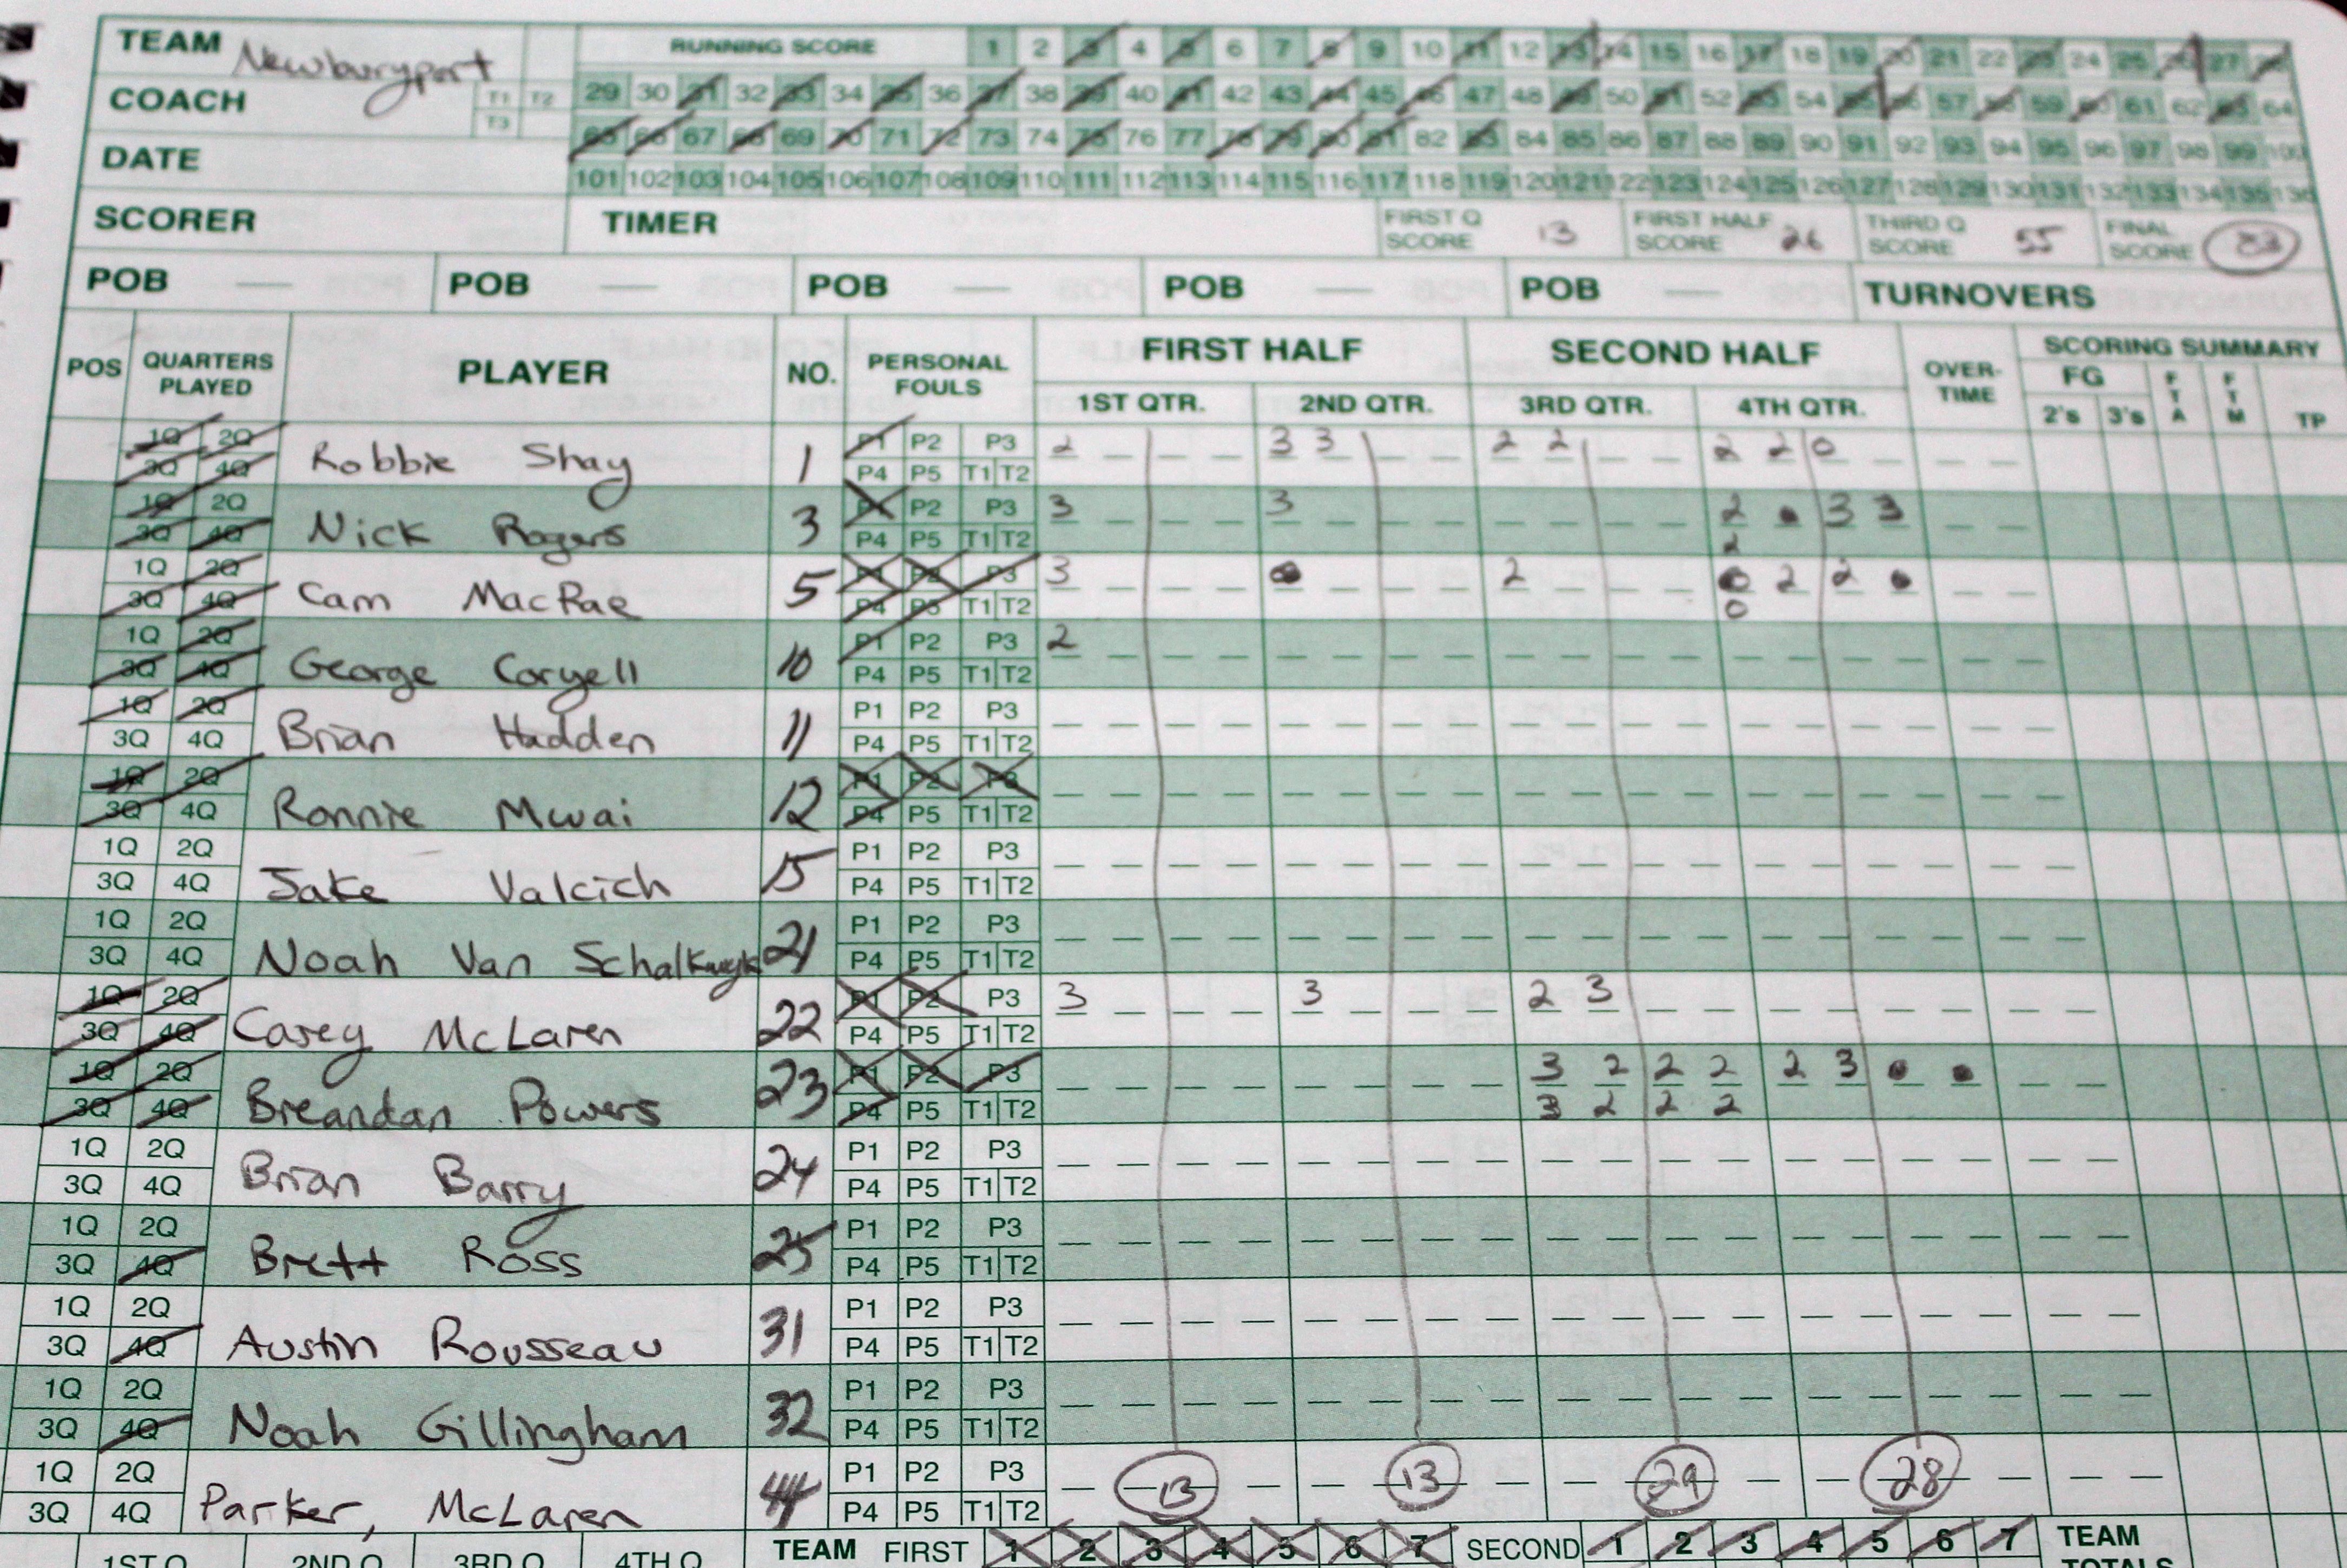 TEAM Newburyport RUNNING SCORE 1 2 3 4 5 6 7 8 9 10 11 12 13 14 15 16 17 18 19 20 21 22 23 24 25 26 27 28
COACH T1 T2 T3 29 30 31 32 33 34 35 36 37 38 39 40 41 42 43 44 45 46 47 48 49 50 51 52 53 54 55 56 57 58 59 60 61 62 63 64
65 66 67 68 69 70 71 72 73 74 75 76 77 78 79 80 81 82 83 84 85 86 87 88 89 90 91 92 93 94 95 96 97 98 99 100
DATE 101 102 103 104 105 106 107 108 109 110 111 112 113 114 115 116 117 118 119 120 121 122 123 124 125 126 127 128 129 130 131 132 133 134 135 136
SCORER TIMER FIRST Q SCORE 13 FIRST HALF SCORE 26 THIRD Q SCORE 55 FINAL SCORE 83
POB POB POB POB POB TURNOVERS
POS QUARTERS PLAYED PLAYER NO. PERSONAL FOULS FIRST HALF SECOND HALF OVER-TIME SCORING SUMMARY
1ST QTR. 2ND QTR. 3RD QTR. 4TH QTR. FG 2's 3's FTA FTM TP
1Q 2Q Robbie Shay 1 P1 P2 P3 2 3 3 2 2 2 2 0
3Q 4Q P4 P5 T1 T2
1Q 2Q Nick Rogers 3 P1 P2 P3 3 3 2 • 3 3
3Q 4Q P4 P5 T1 T2 2
1Q 2Q Cam MacRae 5 P1 P2 P3 3 2 2 2
3Q 4Q P4 P5 T1 T2 0
1Q 2Q George Coryell 10 P1 P2 P3 2
3Q 4Q P4 P5 T1 T2
1Q 2Q Brian Hadden 11 P1 P2 P3
3Q 4Q P4 P5 T1 T2
1Q 2Q Ronnie Mwai 12 P1 P2 P3
3Q 4Q P4 P5 T1 T2
1Q 2Q Jake Valcich 15 P1 P2 P3
3Q 4Q P4 P5 T1 T2
1Q 2Q Noah Van Schalkwyk 21 P1 P2 P3
3Q 4Q P4 P5 T1 T2
1Q 2Q Casey McLaren 22 P1 P2 P3 3 3 2 3
3Q 4Q P4 P5 T1 T2
1Q 2Q Breandan Powers 23 P1 P2 P3 3 2 2 2 2 3 • •
3Q 4Q P4 P5 T1 T2 3 2 2 2
1Q 2Q Brian Barry 24 P1 P2 P3
3Q 4Q P4 P5 T1 T2
1Q 2Q Brett Ross 25 P1 P2 P3
3Q 4Q P4 P5 T1 T2
1Q 2Q Austin Rousseau 31 P1 P2 P3
3Q 4Q P4 P5 T1 T2
1Q 2Q Noah Gillingham 32 P1 P2 P3
3Q 4Q P4 P5 T1 T2
1Q 2Q Parker, McLaren 44 P1 P2 P3 13 13 29 28
3Q 4Q P4 P5 T1 T2
1ST Q 2ND Q 3RD Q 4TH Q TEAM FIRST 1 2 3 4 5 6 7 SECOND 1 2 3 4 5 6 7 TEAM TOTALS